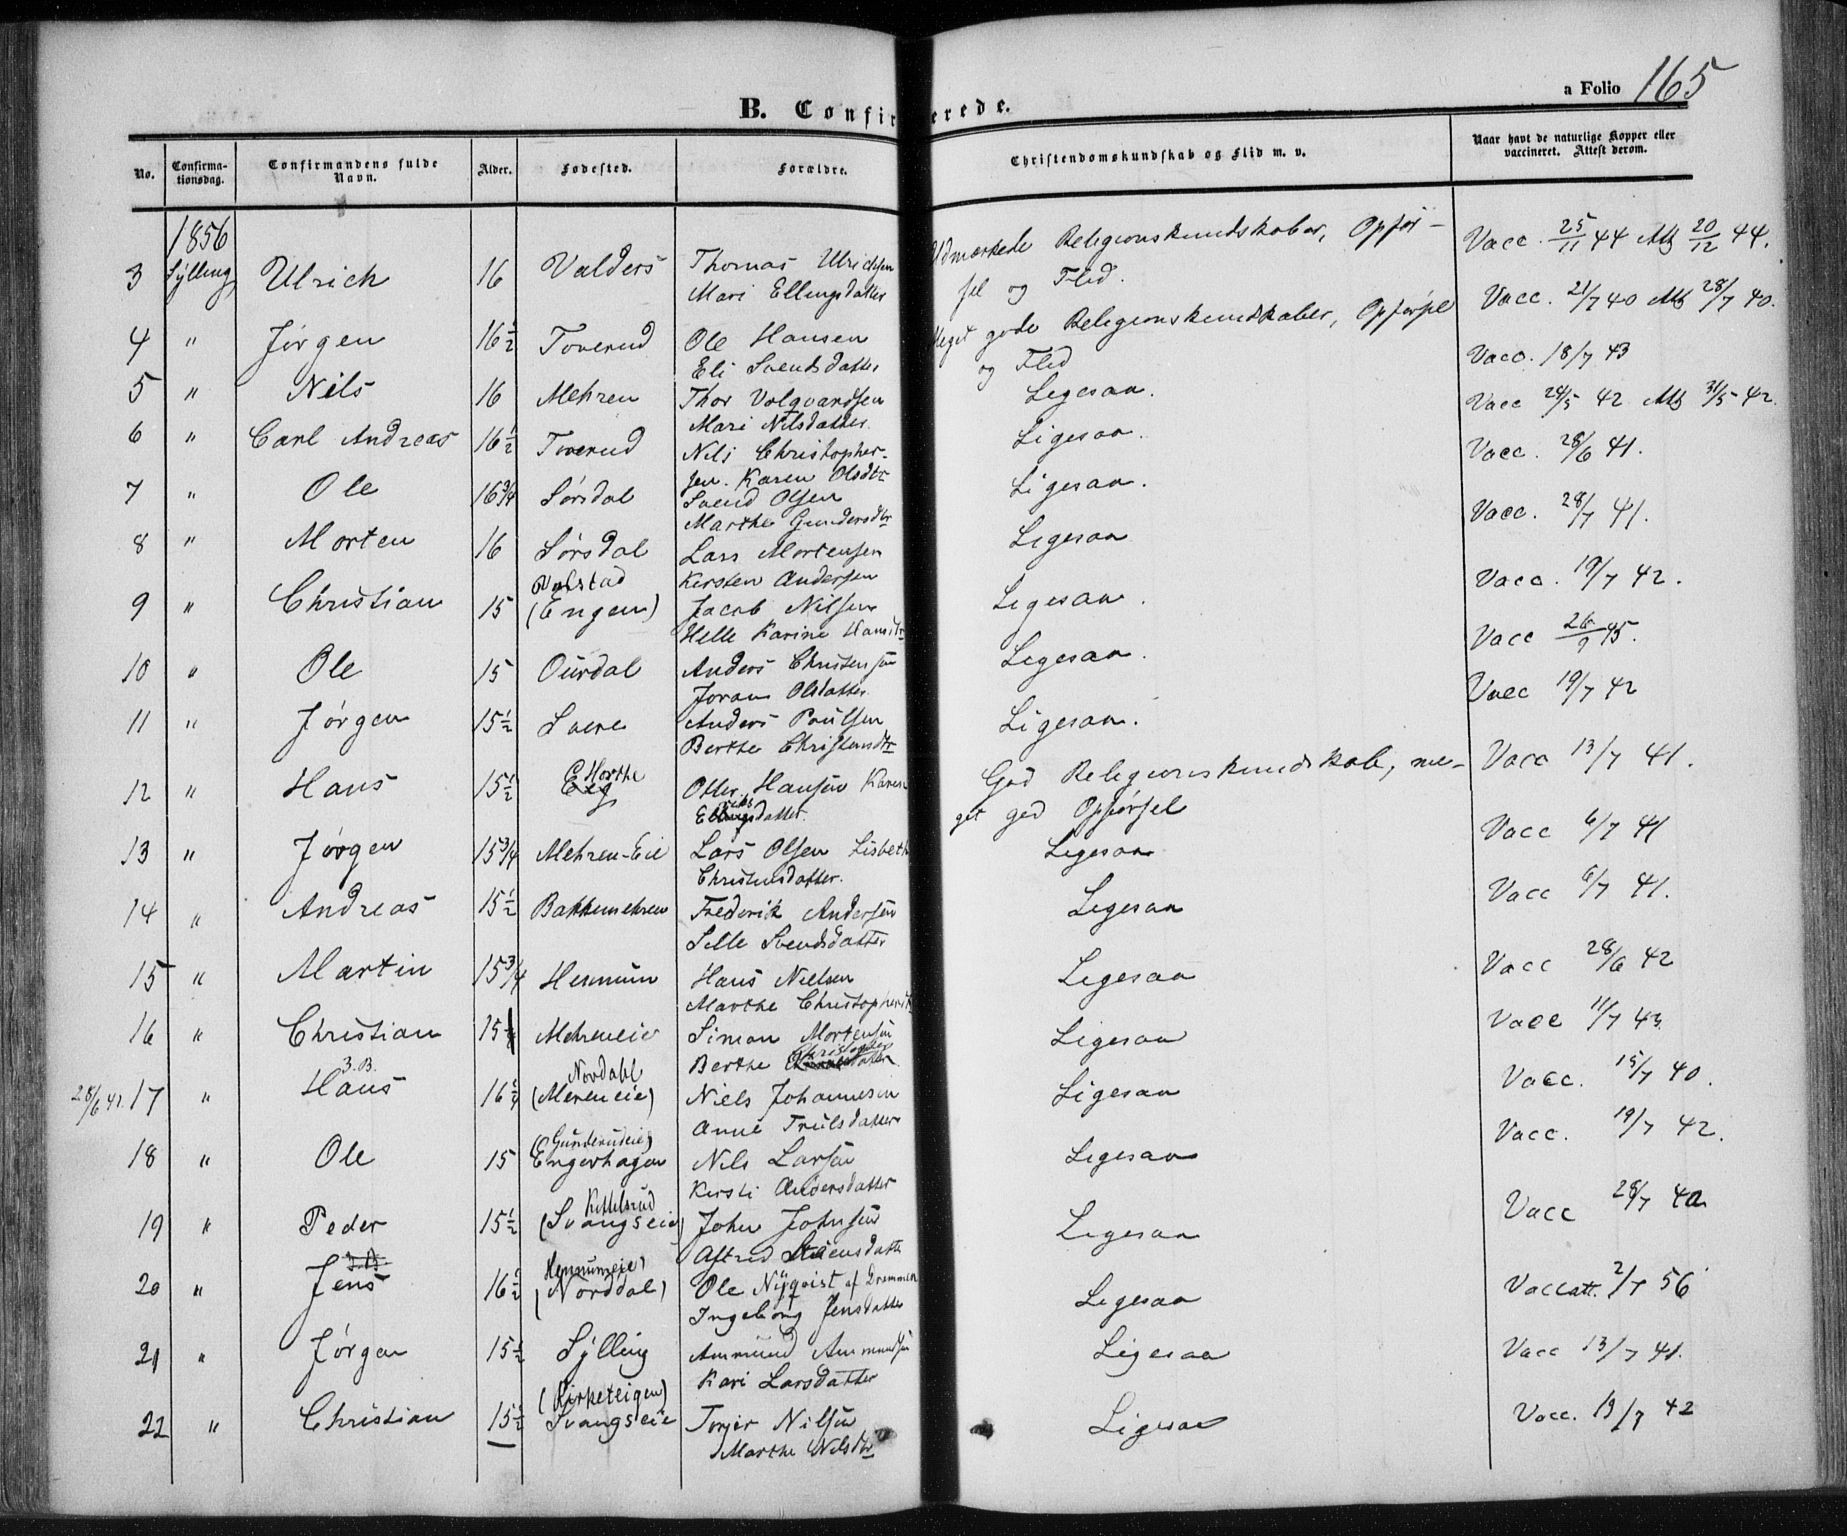 a Folio 165
B. Confirmerede.
No. Confirmationsdag. Confirmandens fulde Navn. Alder. Fødested. Forældre. Christendomskundskab og Flid m. v. Naar havt de naturlige Kopper eller vaccineret. Attest derom.
1856
3 Sylling Ulrich 16 Valders Thomas Ulrichsen Mari Ellingsdatter Udmærkede Religionskundskaber, Opførsel og Flid. Vacc. 25/11 44 Att 20/12 44.
4 " Jørgen 16 1/2 Toverud Ole Hansen Eli Svendsdatter Meget gode Religionskundskaber, Opførsel og Flid Vacc. 21/7 40 Att 28/7 40.
5 " Nils 16 Mehren Thor Volqvardsen Mari Nilsdatter Ligesaa. Vacc. 18/7 43
6 " Carl Andreas 16 1/2 Toverud Nils Christophersen. Karen Olsdtr Ligesaa. Vacc 24/5 42 Att 31/5 42.
7 " Ole 16 3/4 Sørsdal Svend Olsen Marthe Gundersdtr Ligesaa. Vacc. 28/6 41.
8 " Morten 16 Sørsdal Lars Mortensen Kirsten Andersen Ligesaa Vacc. 28/7 41.
9 " Christian 15 Valstad (Engen) Jacob Nilsen Helle Karine Hansdtr Ligesaa. Vacc. 19/7 42.
10 " Ole 15 Ourdal Anders Christensen Joran Olsdatter Ligesaa. Vacc 26/9 45.
11 " Jørgen 15 1/2 Svere Anders Poulsen Berthe Christensdtr Ligesaa. Vacc 19/7 42
12 " Hans 15 1/2 Horthe Eeg Otter Hansen Karen Ellingsdatter. God Religionskundskab, meget god Opførsel Vacc 13/7 41.
13 " Jørgen 15 3/4 Mehren-Eie Lars Olsen Lisbeth Christensdatter. Ligesaa Vacc 6/7 41
14 " Andreas 15 1/2 Bakkemehren Frederik Andersen Sille Svendsdatter Ligesaa Vacc 6/7 41.
15 " Martin 15 3/4 Hennum Hans Nielsen Marthe Christophersdtr Ligesaa Vacc 28/6 42
16 " Christian 15 Mehreneie Simon Mortensen Berthe Christophersdatter Ligesaa Vacc 11/7 43
28/6 41. 17 " 3.B. Hans 16 1/2 Nordahl (Mereneie) Niels Johannesen Anne Trulsdatter Ligesaa Vacc. 15/7 40.
18 " Ole 15 Gunderudeie Engerhagen Nils Larsen Kirsti Andersdatter Ligesaa Vacc. 19/7 42.
19 " Peder 15 1/2 Kittelsrud (Svangseie) John Johnsen Astrid Steensdatter Ligesaa Vacc 28/7 42
20 " 3.B. Jens 16 1/2 Hennumseie (Norddal) Ole Nyqvist af Drammen Ingeborg Jensdatter Ligesaa Vaccatt. 2/7 56
21 " Jørgen 15 1/2 Sylling Ammund Ammundsen Kari Larsdatter Ligesaa Vacc 13/7 41.
22 " Christian 15 1/2 (Kirketeigen) Svangseie Torjer Nilsen Marthe Nilsdtr Ligesaa Vacc. 19/7 42